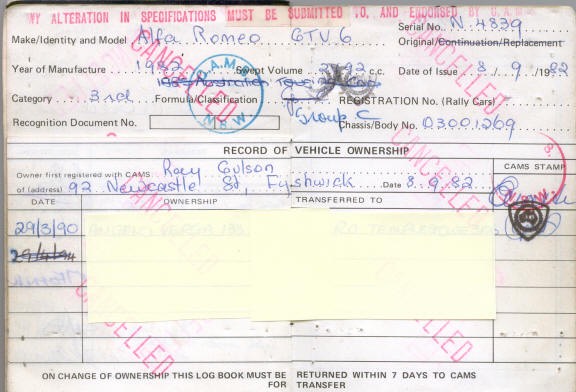 ANY ALTERATION IN SPECIFICATIONS MUST BE SUBMITTED TO, AND ENDORSED BY C.A.M.S.
Serial No. N.4839
Make/Identity and Model Alfa Romeo GTV 6
Original/Continuation/Replacement
Year of Manufacture 1982 Swept Volume c.c. Date of Issue 8/9/1982
C.A.M.S. N.S.W.
Category 3rd Formula/Classification Group C REGISTRATION No. (Rally Cars)
Recognition Document No. Chassis/Body No. 03001269
RECORD OF VEHICLE OWNERSHIP
Owner first registered with CAMS Ray Gulson CAMS STAMP
(of address) 92 Newcastle St, Fyshwick Date 8.9.82
N.S.W.
DATE OWNERSHIP TRANSFERRED TO
29/3/90
29/4/94
CANCELLED
CANCELLED
CANCELLED
CANCELLED
CANCELLED
CANCELLED
CANCELLED
ON CHANGE OF OWNERSHIP THIS LOG BOOK MUST BE RETURNED WITHIN 7 DAYS TO CAMS
FOR TRANSFER